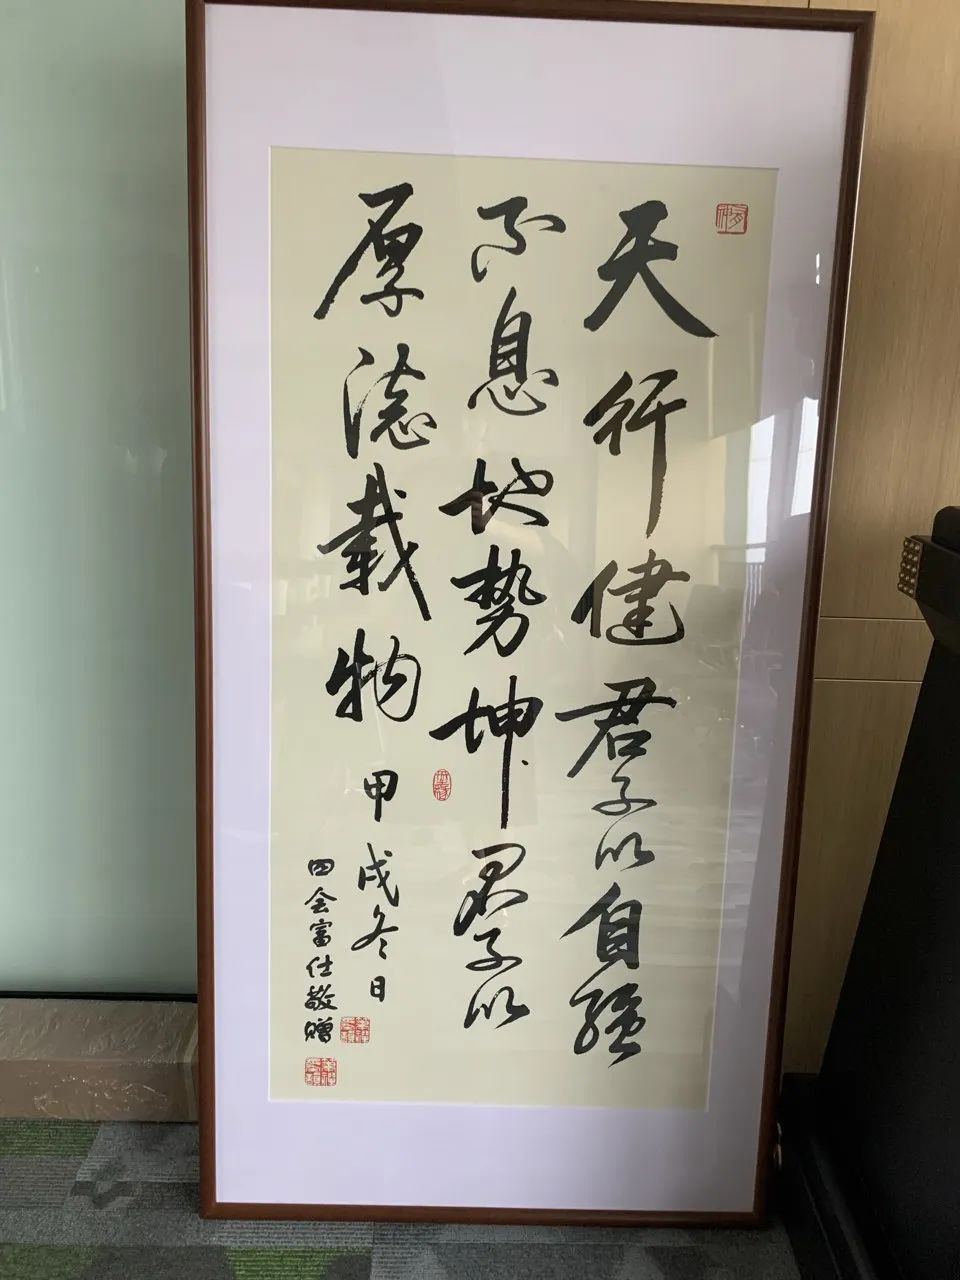 天行健君子以自强
不息地势坤君子以
厚德载物
甲戌冬日
四会富仕敬赠